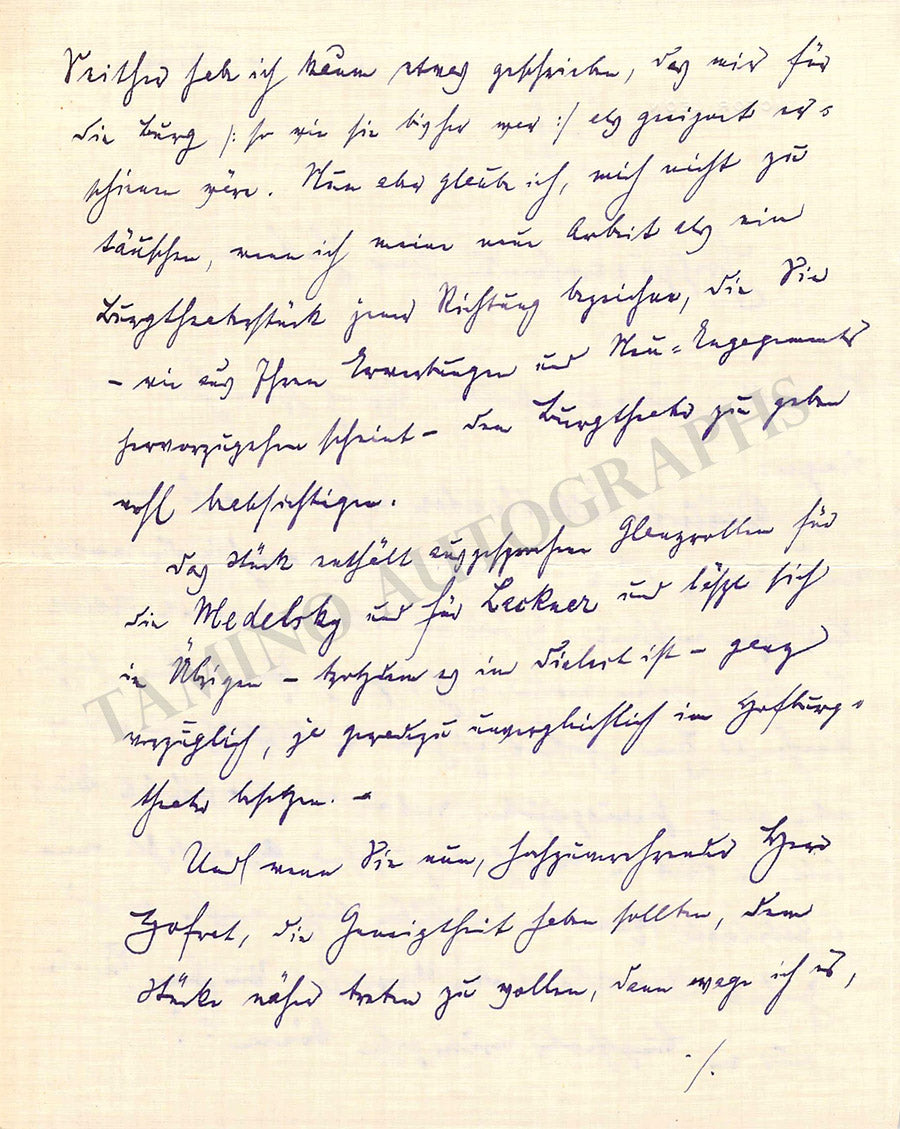 Seither habe ich kaum etwas geschrieben, das mir für
die Burg /: so wie sie bisher war :/ als geeignet er=
schienen wäre. Nun aber glaube ich, mich nicht zu
täuschen, wenn ich meine neue Arbeit als ein
Burgtheaterstück jener Richtung bezeichne, die Sie
– wie aus Ihren Erwerbungen und Neu=Engagements
hervorzugehen scheint – dem Burgtheater zu geben
wohl beabsichtigen.
Das Stück enthält ausgesprochene Glanzrollen für
die Medelsky und für Lackner und läßt sich
im Übrigen – trotzdem es im Dialect ist – ganz
vorzüglich, ja geradezu unvergleichlich im Hofburg=
theater besetzen. –
Und wenn Sie nun, hochzuverehrender Herr
Hofrat, die Geneigtheit haben sollten, dem
Stücke näher treten zu wollen, dann wage ich es,
./.
TAMINO AUTOGRAPHS